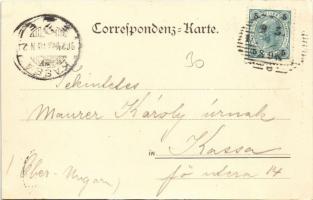 Correspondenz-Karte.
30
Tekintetes
Maurer Károly úrnak
in Kassa
fő utcza 14
(Ober-Ungarn)
KASSA